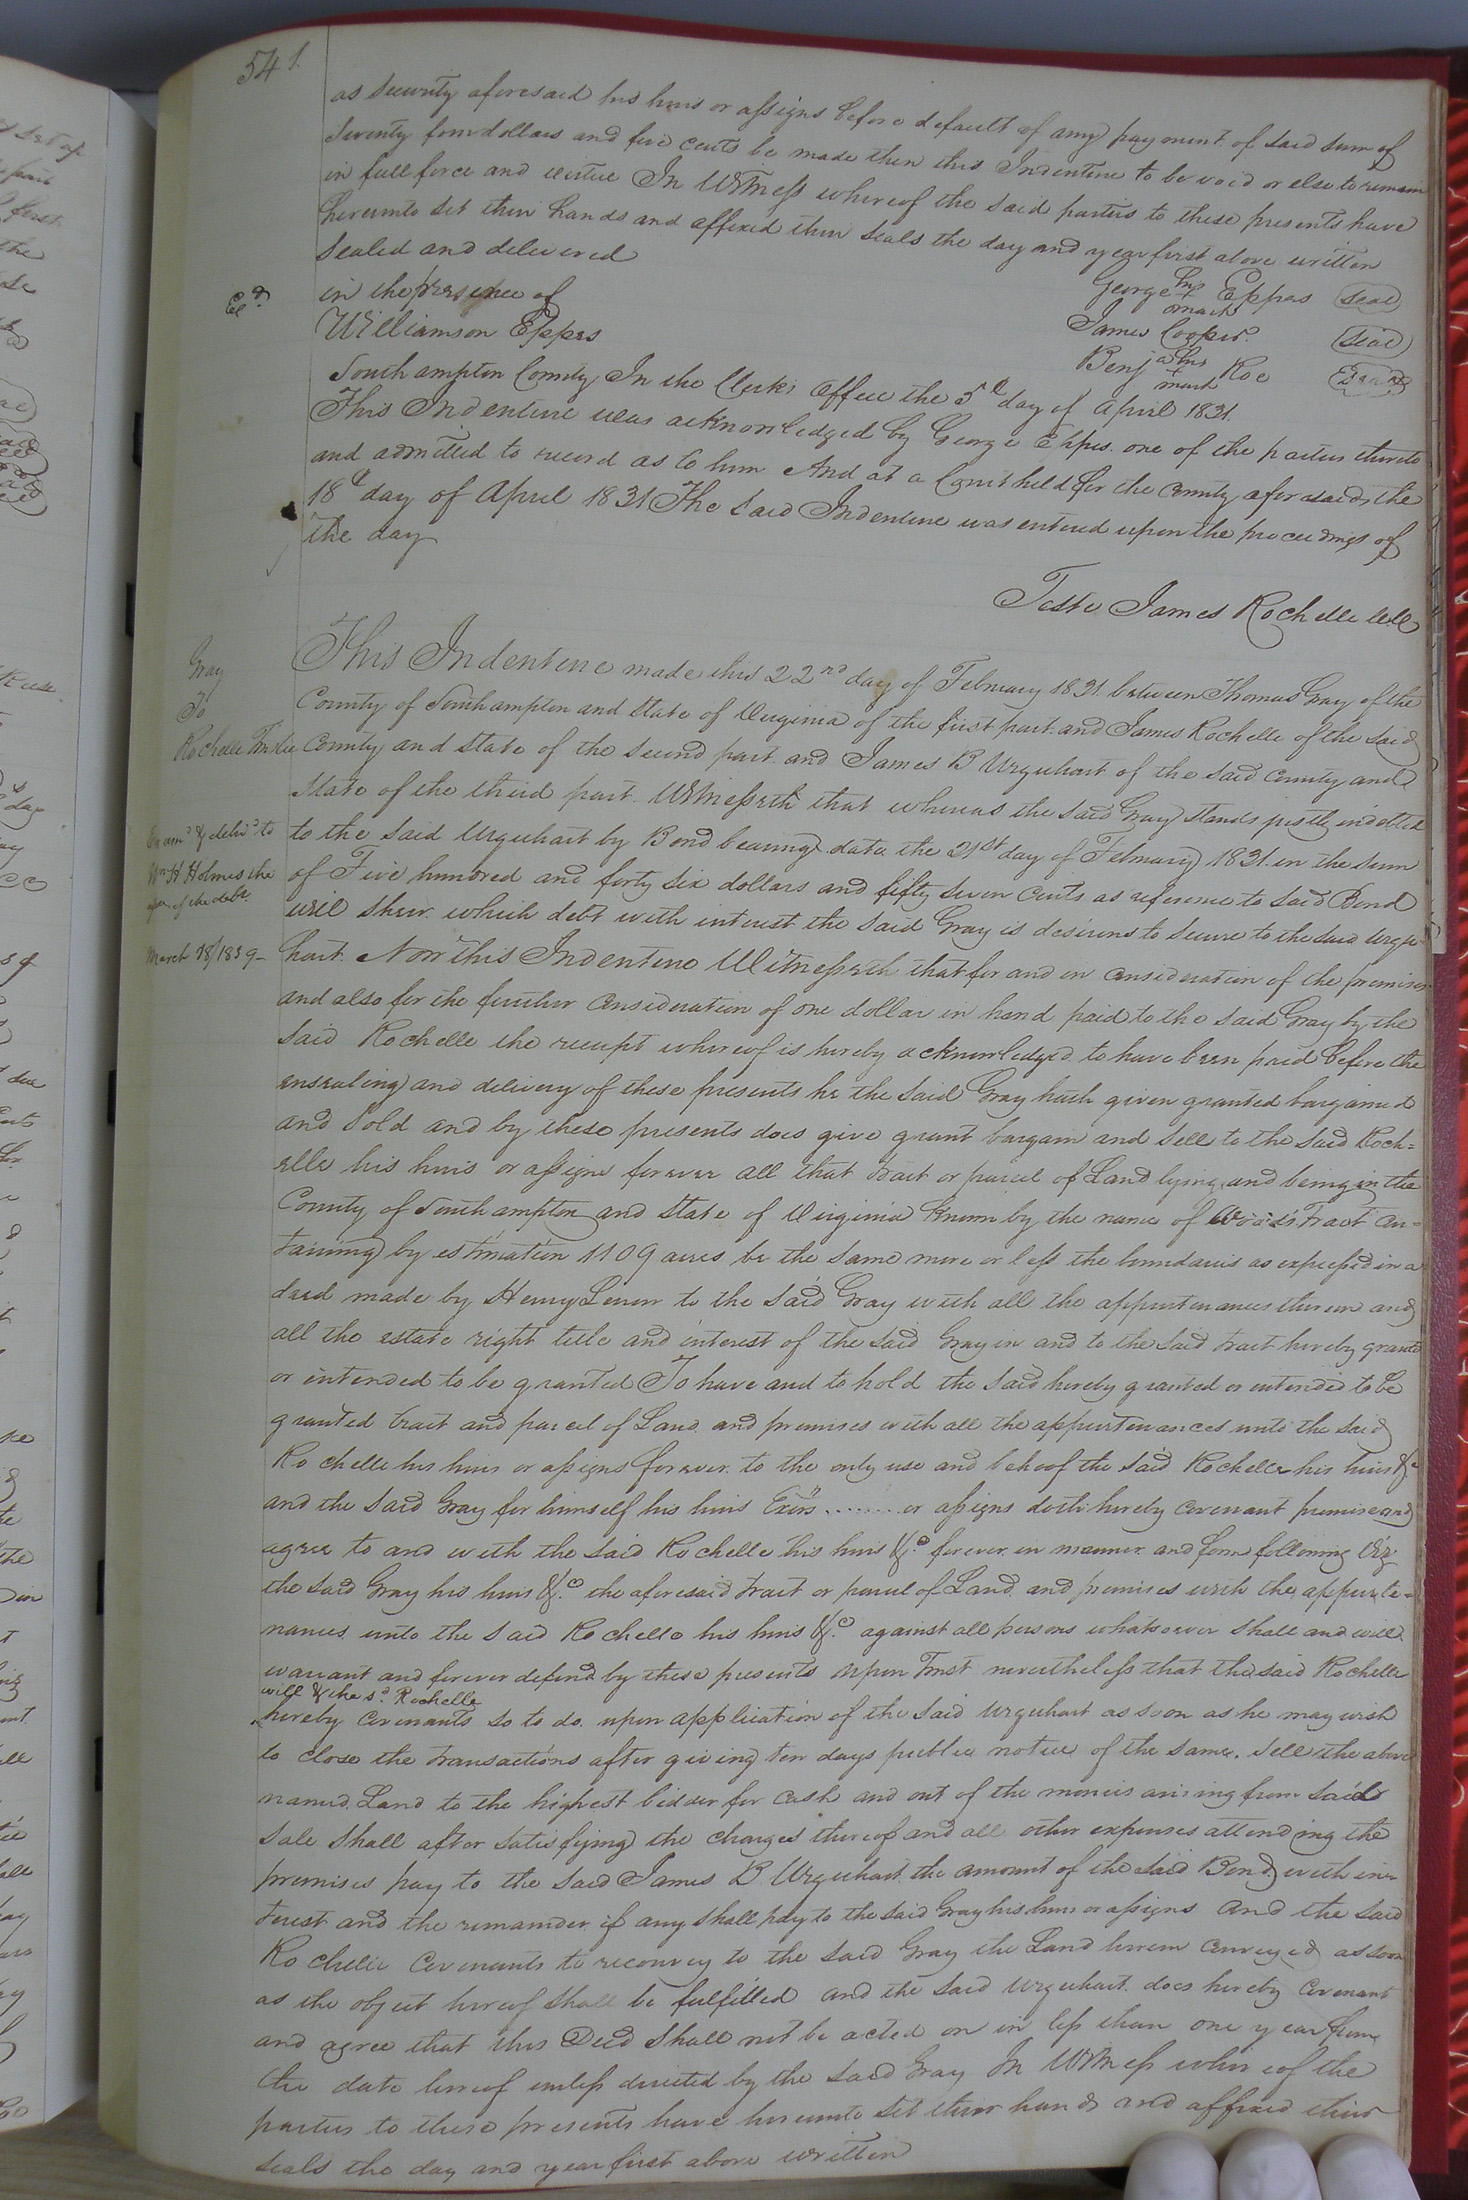 541.
as security aforesaid his heirs or assigns before default of any payment of said sum of
Seventy four dollars and five cents be made then this Indenture to be void or else to remain
in full force and virtue In Witness whereof the said parties to these presents have
hereunto set their hands and affixed their seals the day and year first above written
Sealed and delivered
in the presence of
Williamson Eppes
George his mark Eppes seal
James Cooper. seal
Benja his mark Roe seal
Exd.
Southampton County In the Clerks Office the 5th day of April 1831.
This Indenture was acknowledged by George Eppes one of the parties thereto
and admitted to record as to him And at a Court held for the County aforesaid, the
18th day of April 1831 The said Indenture was entered upon the proceedings of
the day
Teste James Rochelle
Gray
To
Rochelle Trustee
Exam'd & deliv'd to
Wm H Holmes the
of the debt
March 28/1839-
This Indenture made this 22nd day of February 1831 between Thomas Gray of the
County of Southampton and State of Virginia of the first part and James Rochelle of the said
County and State of the second part and James B Urquhart of the said County and
State of the third part. Witnesseth that whereas the said Gray stands justly indebted
to the said Urquhart by Bond bearing date the 21st day of February 1831 in the sum
of Five hundred and forty six dollars and fifty seven cents as reference to said Bond
will shew which debt with interest the said Gray is desirous to secure to the said Urqu-
hart. Now this Indenture Witnesseth that for and in consideration of the premises
and also for the further consideration of one dollar in hand paid to the said Gray by the
said Rochelle the receipt whereof is hereby acknowledged to have been paid before the
ensealing and delivery of these presents he the said Gray hath given granted bargained
and sold and by these presents does give grant bargain and sell to the said Roch=
elle his heirs or assigns forever all that tract or parcel of Land lying and being in the
County of Southampton and State of Virginia known by the name of Wood's Tract con=
taining by estimation 1109 acres be the same more or less the boundaries as expressed in a
deed made by Henry to the said Gray with all the appurtenances thereon and
all the estate right title and interest of the said Gray in and to the said tract hereby granted
or intended to be granted To have and to hold the said hereby granted or intended to be
granted tract and parcel of Land and premises with all the appurtenances unto the said
Rochelle his heirs or assigns forever to the only use and behoof the said Rochelle his heirs &c
and the said Gray for himself his heirs Exors ........ or assigns doth hereby covenant promise and
agree to and with the said Rochelle his heirs &c. forever in manner and form following Viz
the said Gray his heirs &c. the aforesaid tract or parcel of Land and premises with the appurte=
nances unto the said Rochelle his heirs &c. against all persons whatsoever shall and will
warrant and forever defend by these presents upon Trust nevertheless that the said Rochelle
will & the sd. Rochelle
hereby covenants so to do. upon application of the said Urquhart as soon as he may wish
to close the transactions after giving ten days public notice of the same. sell the above
named Land to the highest bidder for cash and out of the monies arising from said
Sale shall after satisfying the charges thereof and all other expenses attending the
premises pay to the said James B Urquhart the amount of the said Bond with in-
terest and the remainder if any shall pay to the said Gray his heirs or assigns And the said
Rochelle covenants to reconvey to the said Gray the Land herein conveyed as soon
as the object hereof shall be fulfilled and the said Urquhart does hereby covenant
and agree that this Deed shall not be acted on in less than one year from
the date hereof unless directed by the said Gray In Witness whereof the
parties to these presents have hereunto set their hands and affixed their
seals the day and year first above written